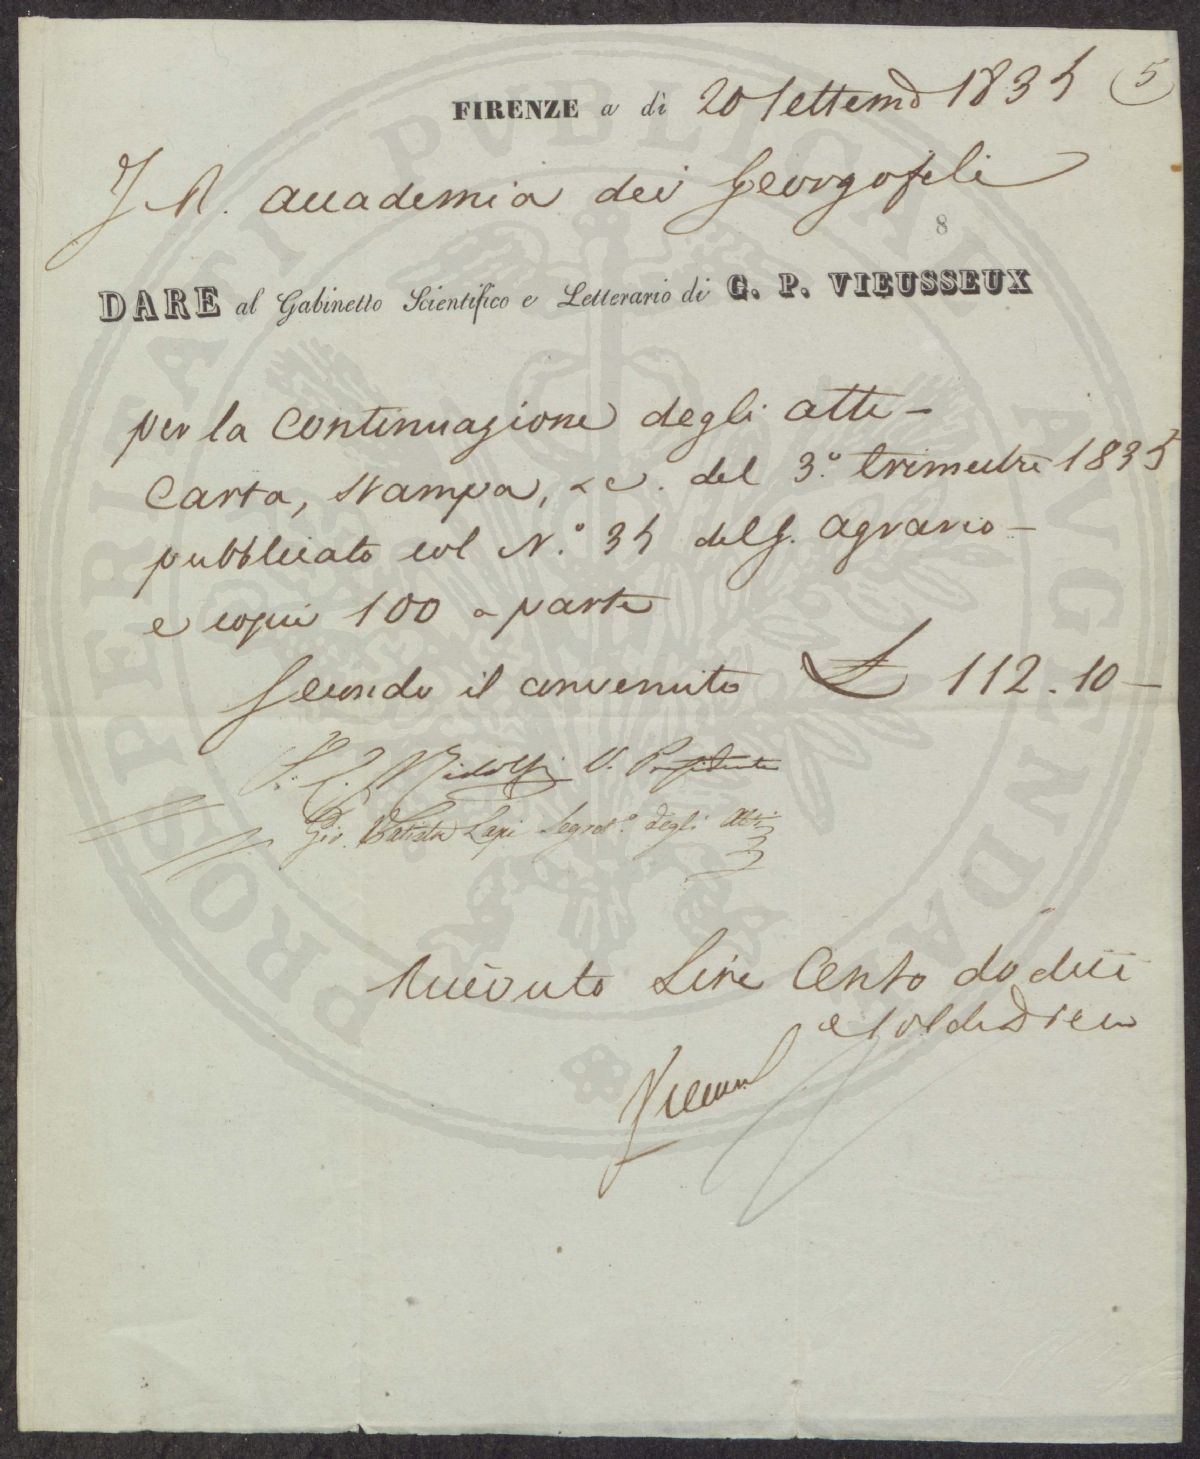 FIRENZE a dì 20 Settemb 1835 5
I. R. Accademia dei Georgofili
8
DARE al Gabinetto Scientifico e Letterario di G. P. VIEUSSEUX
per la continuazione degli atti -
Carta, stampa, &c. del 3.° trimestre 1835
pubblicato col N.° 35 del G. agrario -
e copie 100 a parte
Secondo il convenuto £ 112.10 -
C. Ridolfi V. Presidente
Gio. Batista Lapi Segret.° degli Atti
Ricevuto Lire Cento dodici
e soldi Dieci
Vieusseux
PROSPERITATI PVBLICAE AVGENDAE